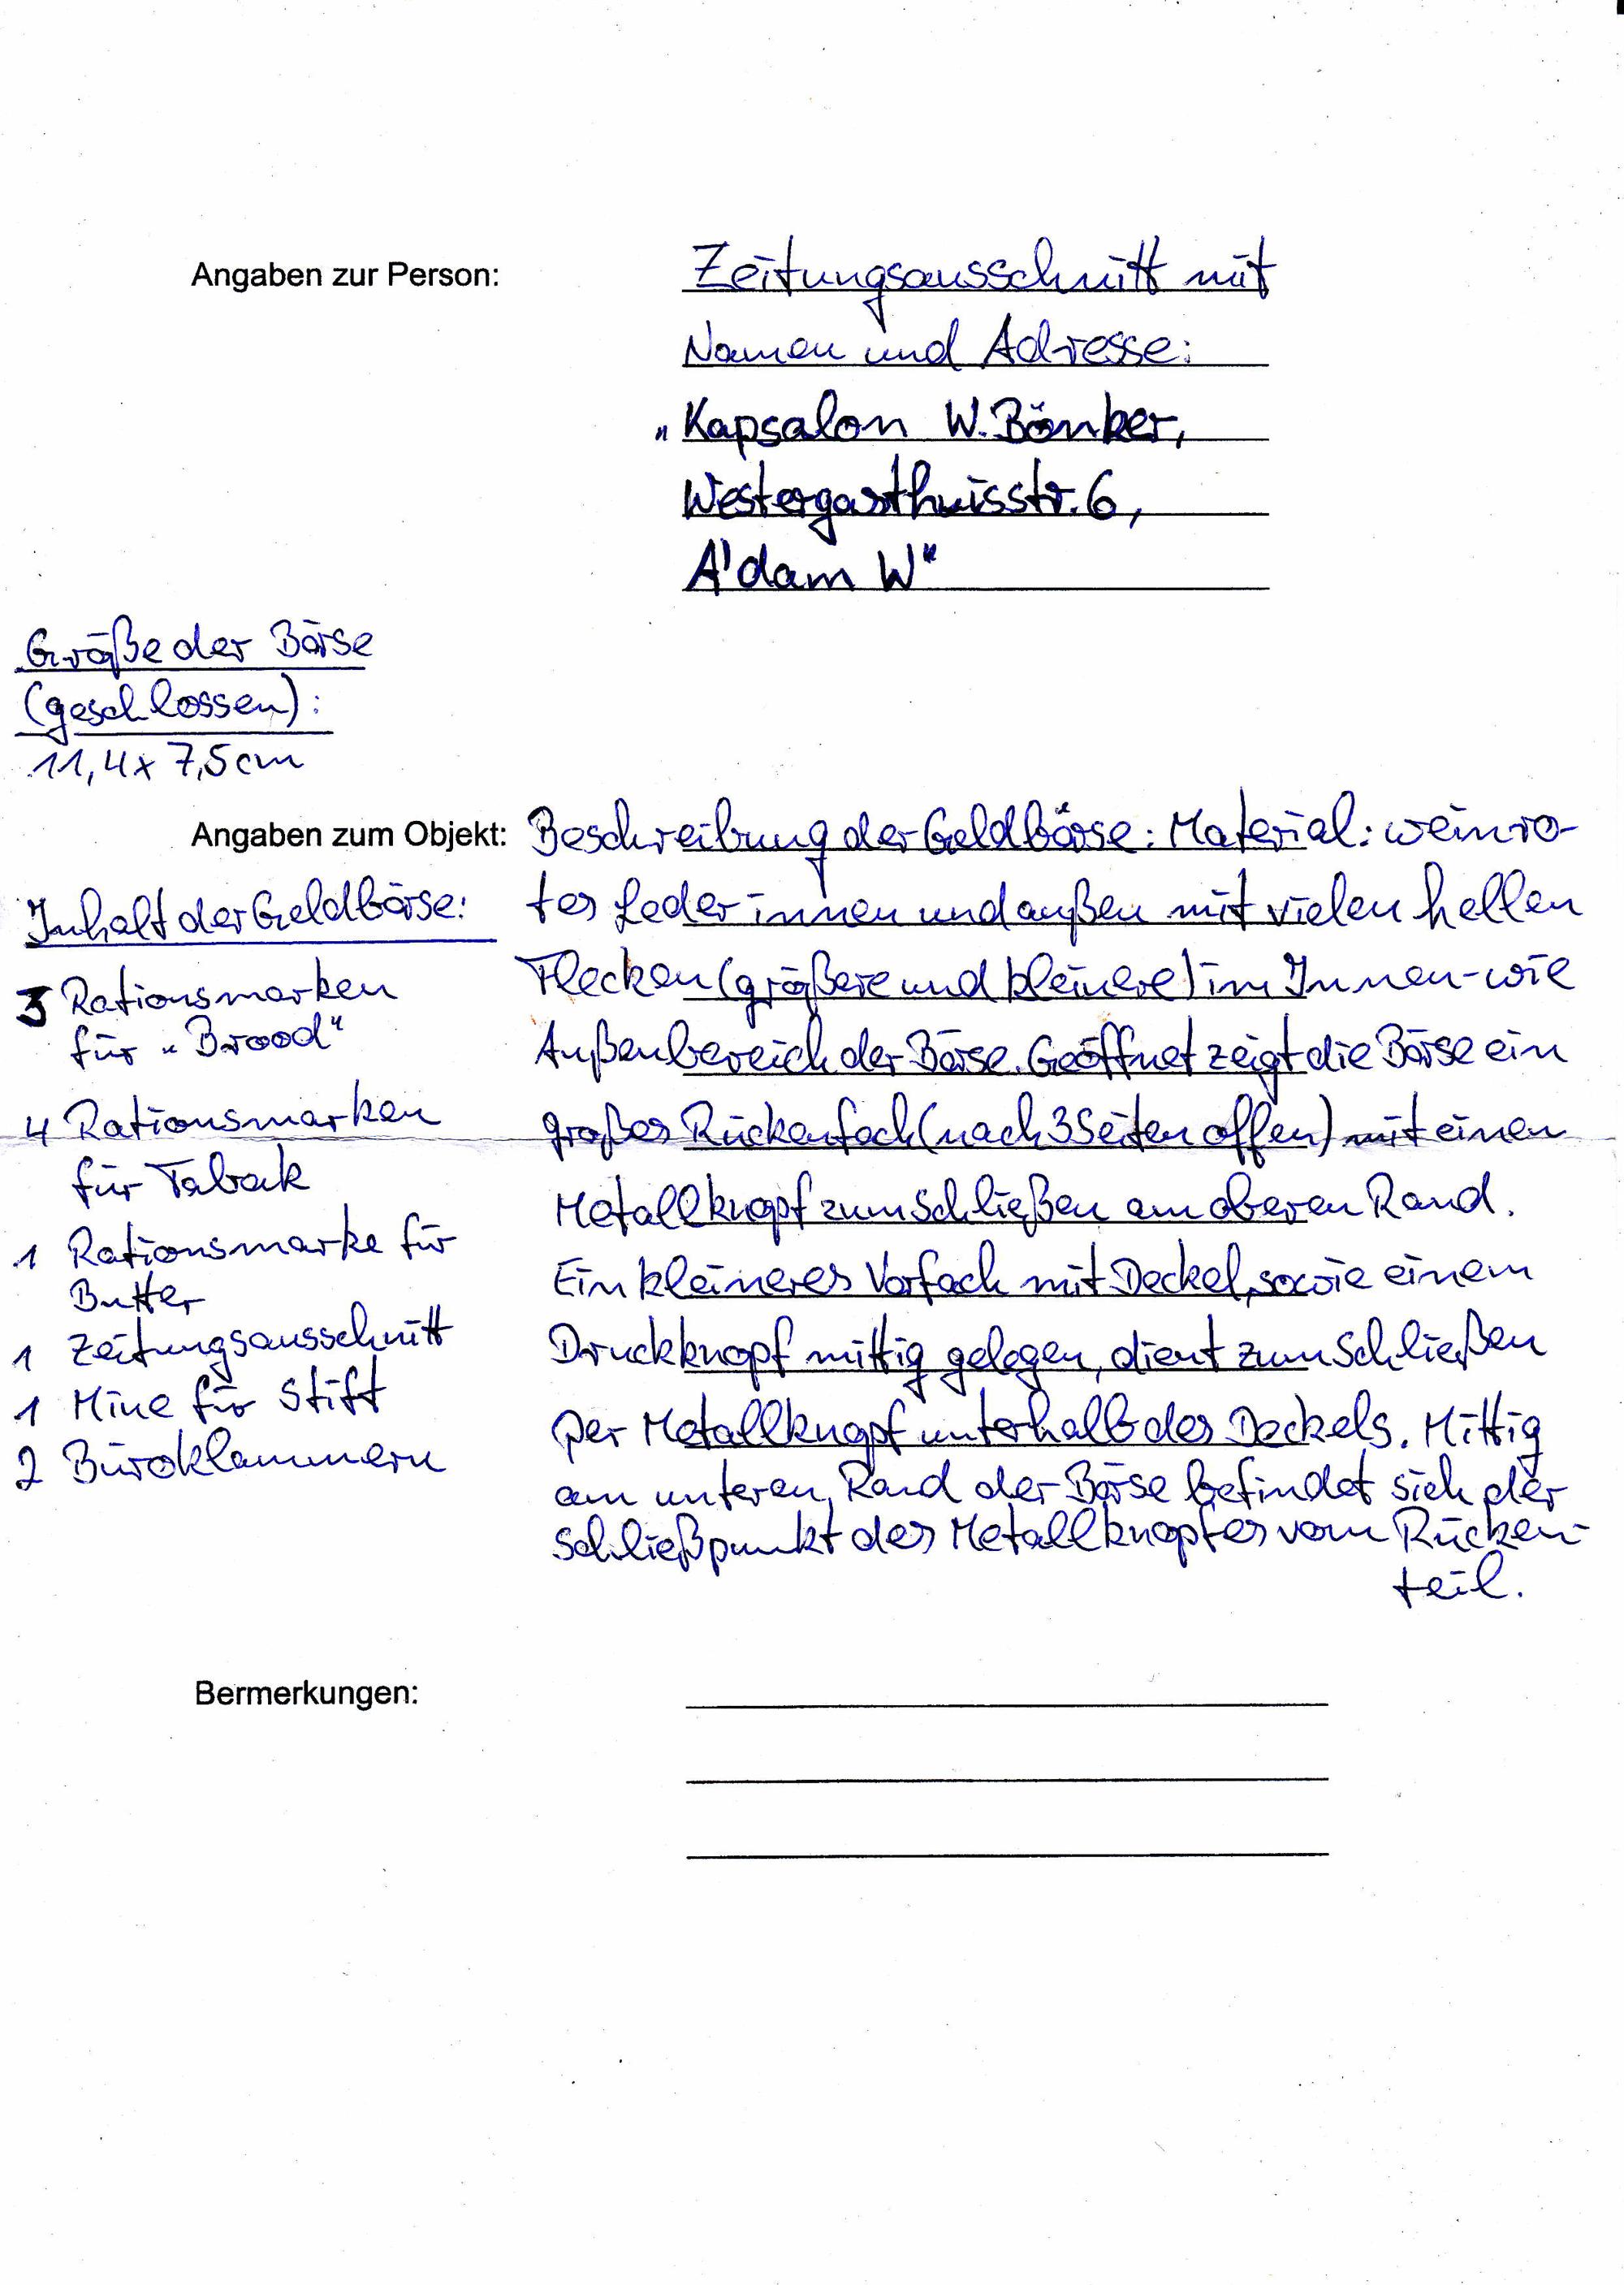 Angaben zur Person:
Zeitungsausschnitt mit
Namen und Adresse:
„Kapsalon W. Bönker,
Westergasthuisstr. 6,
A'dam W"
Größe der Börse
(geschlossen):
11,4 x 7,5 cm
Angaben zum Objekt:
Beschreibung der Geldbörse: Material: weinro-
tes Leder innen und außen mit vielen hellen
Flecken (größere und kleinere) im Innen- wie
Außenbereich der Börse. Geöffnet zeigt die Börse ein
großes Rückenfach (nach 3 Seiten offen) mit einen
Metallknopf zum Schließen am oberen Rand.
Ein kleineres Vorfach mit Deckel, sowie einem
Druckknopf mittig gelegen, dient zum Schließen
per Metallknopf unterhalb des Deckels. Mittig
am unteren Rand der Börse befindet sich der
Schließpunkt des Metallknopfes vom Rücken-
teil.
Inhalt der Geldbörse:
3 Rationsmarken
für „Brood"
4 Rationsmarken
für Tabak
1 Rationsmarke für
Butter
1 Zeitungsausschnitt
1 Mine für Stift
2 Büroklammern
Bermerkungen: